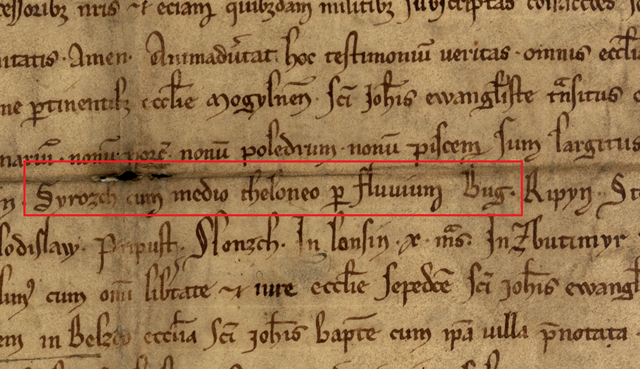 cessoribz nris ⁊ eciam quibzdam militibz subscriptas
nitatis · Amen · Animadvtat hoc testimoniū veritas · omnis eccłia
ne ptinentibz ecctie Mogylneñ · Sci Johis ewangtiste tñsitus
nariū · nonū porc · nonū poledrum · nonū piscem sum largitus
Syrozch cum medio theloneo p fluuium Bug · Ripyn · St
lodislaw · Pripust · Slonzch · In Lonsin · x · ms · In Zbutimyr
cum omi libtate ⁊ iure ecctie sepedce sci Johis ewangt
em in Belzco ecctia sci Johis bapte cum ipa uilla pnotata